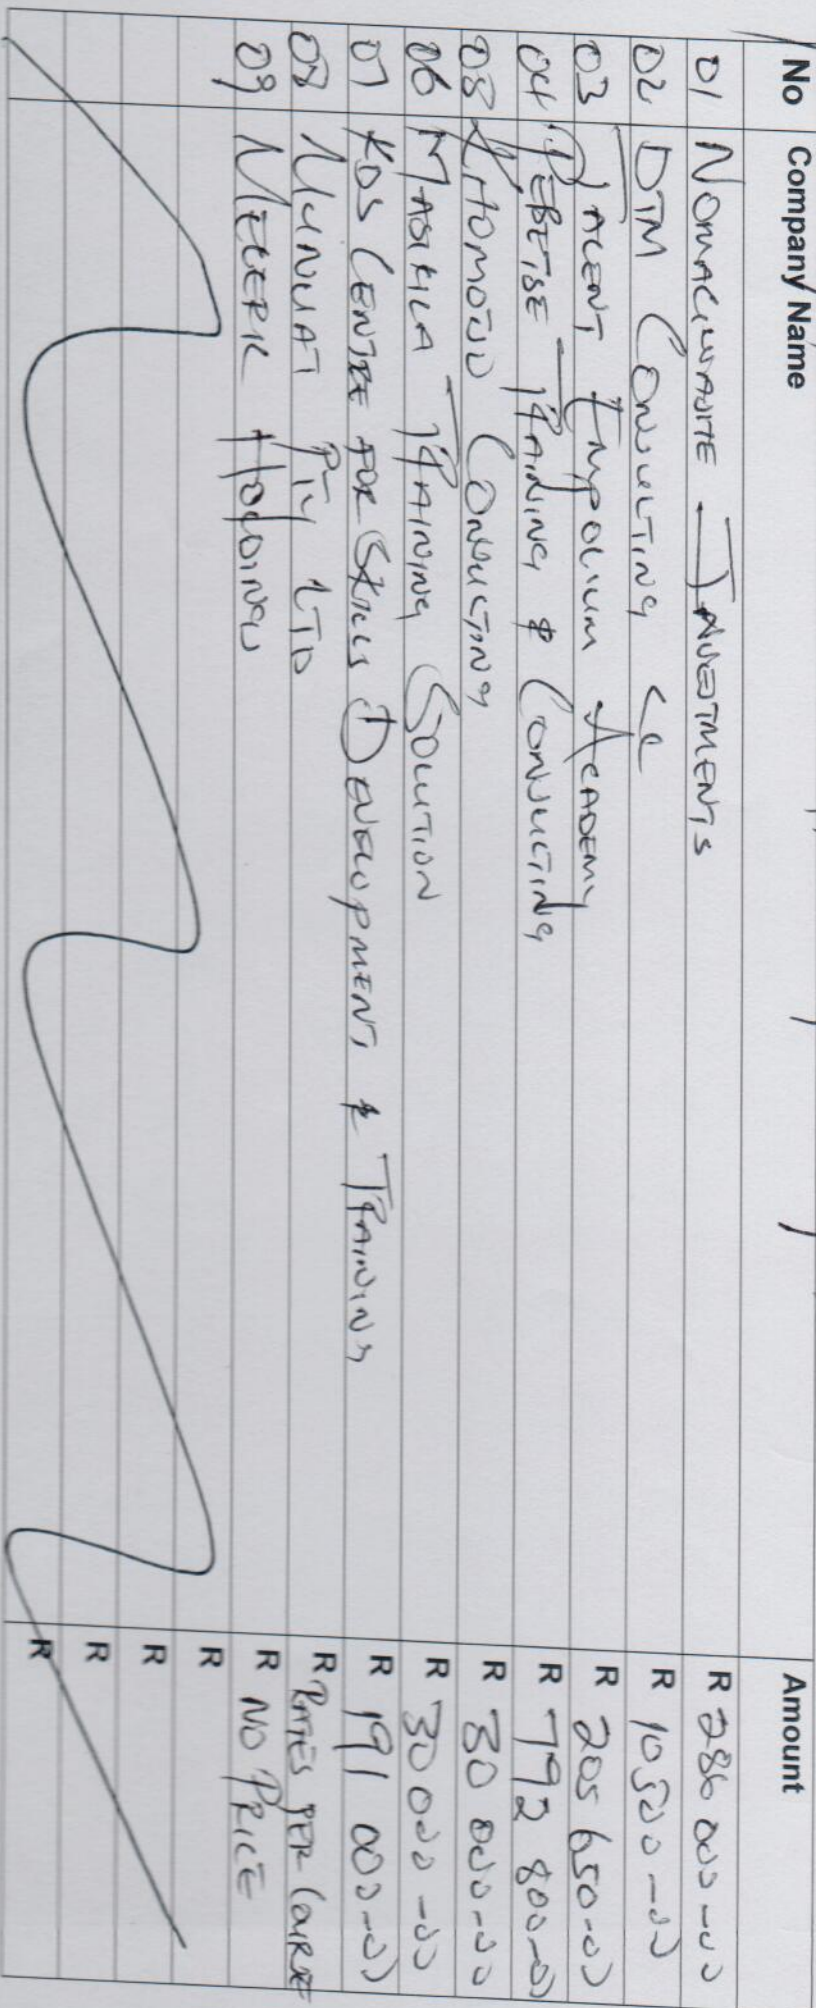 No Company Name Amount
01 NOMACWASITE INVESTMENTS R 286 000-00
02 DTM CONSULTING CC R 10500-00
03 TALENT EMPORIUM ACADEMY R 205 650-00
04 TRAINING & CONSULTING R 792 800-00
05 KHOMOTSO CONSULTING R 30 000-00
06 MASIKILA TRAINING SOLUTION R 30 000-00
07 KDS CENTRE FOR SKILLS DEVELOPMENT & TRAINING R 191 000-00
08 PTY LTD R RATES PER COURSE
09 HOLDINGS R NO PRICE
R
R
R
R